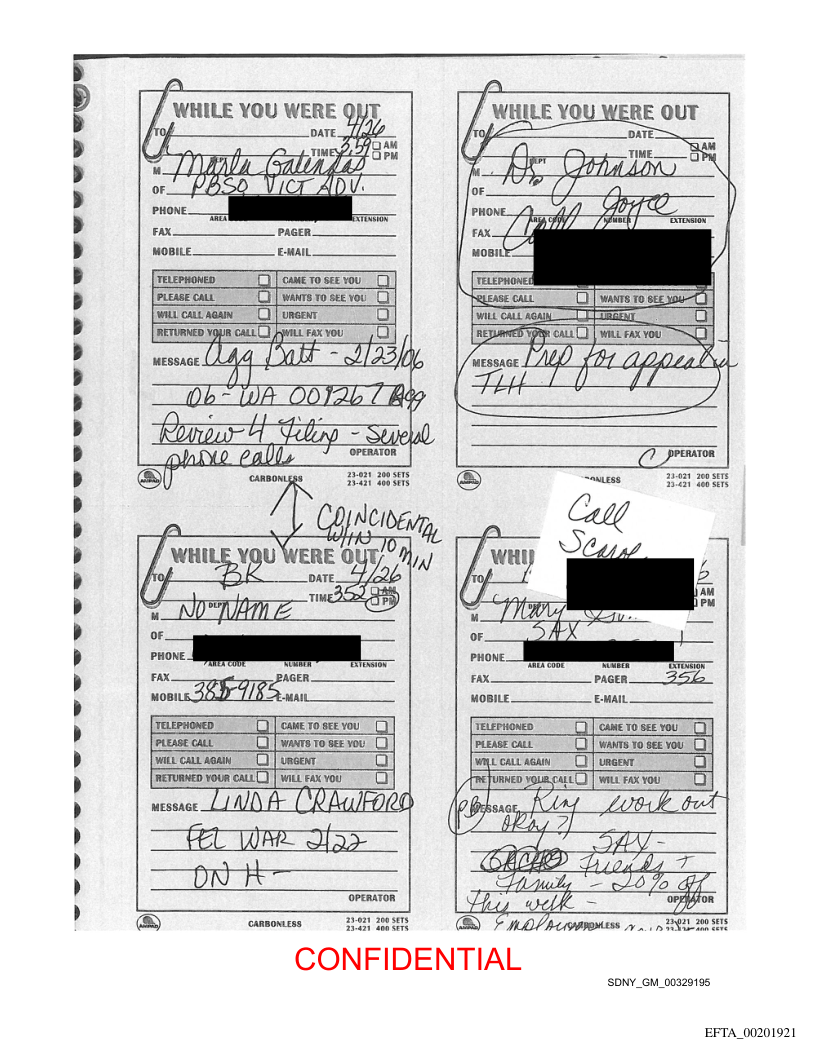 WHILE YOU WERE OUT
TO DATE 4/26
TIME 3:59 AM
PM
DEPT
M Marla
OF PBSO VICT ADV.
PHONE
AREA CODE EXTENSION
FAX PAGER
MOBILE E-MAIL
TELEPHONED CAME TO SEE YOU
PLEASE CALL WANTS TO SEE YOU
WILL CALL AGAIN URGENT
RETURNED YOUR CALL WILL FAX YOU
MESSAGE Agg Batt - 2/23/06
06-WA 001267 A99
Review 4 Filing - several
phone calls
OPERATOR
AMPAD
CARBONLESS
23-021 200 SETS
23-421 400 SETS
WHILE YOU WERE OUT
TO DATE
TIME AM
PM
DEPT
M Dr. Johnson
OF
PHONE Call Joyce
AREA CODE NUMBER EXTENSION
FAX
MOBILE
TELEPHONED
PLEASE CALL WANTS TO SEE YOU
WILL CALL AGAIN URGENT
RETURNED YOUR CALL WILL FAX YOU
MESSAGE Prep for appeal in
TLH
OPERATOR
AMPAD
23-021 200 SETS
23-421 400 SETS
COINCIDENTAL
W/IN 10 MIN
WHILE YOU WERE OUT
TO BK DATE 4/26
TIME 3:52 AM
PM
DEPT
M NO NAME
OF
PHONE
AREA CODE NUMBER EXTENSION
FAX PAGER
MOBILE 385-9185 E-MAIL
TELEPHONED CAME TO SEE YOU
PLEASE CALL WANTS TO SEE YOU
WILL CALL AGAIN URGENT
RETURNED YOUR CALL WILL FAX YOU
MESSAGE LINDA CRAWFORD
FEL WAR 2/22
ON H-
OPERATOR
AMPAD
CARBONLESS
23-021 200 SETS
23-421 400 SETS
Call
Scarol
WHI
TO
AM
PM
DEPT
M Mary
OF SAX
PHONE
AREA CODE NUMBER EXTENSION
FAX PAGER 356
MOBILE E-MAIL
TELEPHONED CAME TO SEE YOU
PLEASE CALL WANTS TO SEE YOU
WILL CALL AGAIN URGENT
RETURNED YOUR CALL WILL FAX YOU
PB
MESSAGE Ring work out
okay?
SAX -
Friends +
Family - 20% off
this week -
OPERATOR
CARBONLESS
23-021 200 SETS
23-421 400 SETS
CONFIDENTIAL
SDNY_GM_00329195
EFTA_00201921